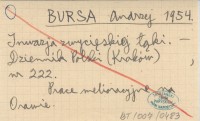 BURSA Andrzej 1954.
Inwazja zwycięskiej łąki. —
Dziennik Polski (Kraków)
nr 222.
Prace melioracyjne na
Orawie.
BT/007/0483